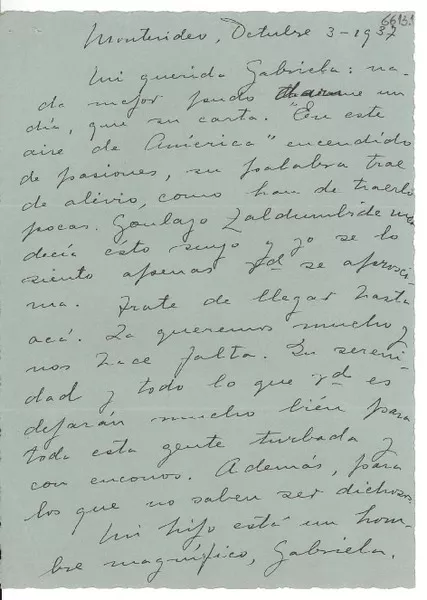 Montevideo, Octubre 3-1937
Mi querida Gabriela: na-
da mejor pudo un
día, que su carta. "En este
aire de América" encendido
de pasiones, su palabra trae
de alivio, como han de traerlo
pocas. Gonzalo Zaldumbide me
decía ésto suyo y yo se lo
siento apenas Vd se aproxi-
ma. Trate de llegar hasta
acá. La queremos mucho y
nos hace falta. Su sereni-
dad y todo lo que Vd es
dejarán mucho bién para
toda esta gente turbada y
con enconos. Además, para
los que no saben ser dichosos.
Mi hijo está un hom-
bre magnífico, Gabriela.